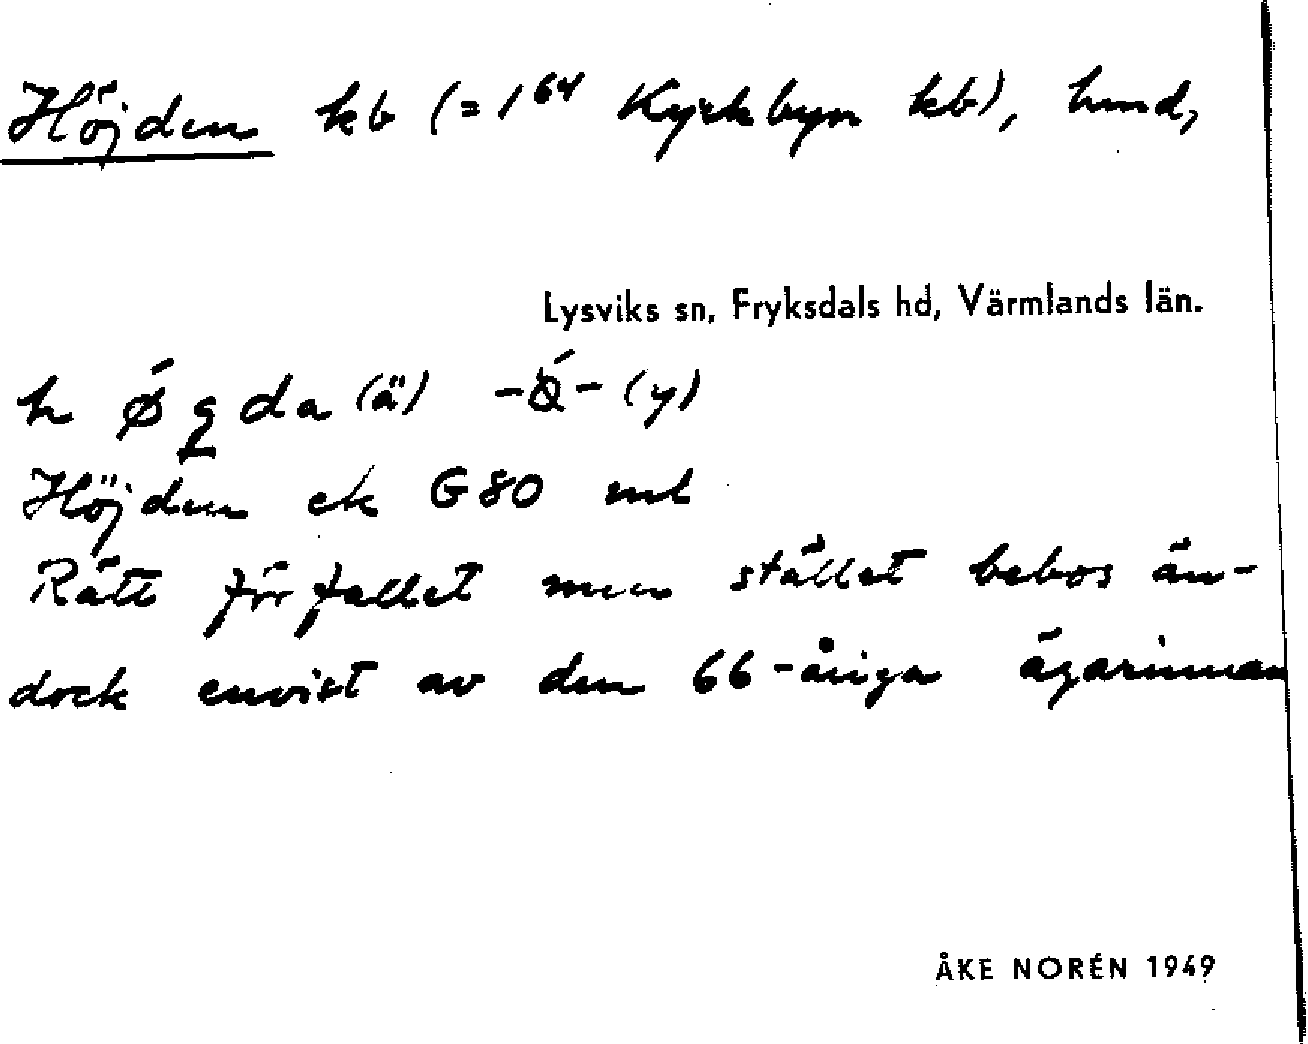 Höjden kb (=1⁶⁴ Kyrkbyn kb), hmd,
Lysviks sn, Fryksdals hd, Värmlands län.
Höjden ek G80 mt
Rätt förfallet men stället bebos än-
dock envist av den 66-åriga ägarinnan
ÅKE NORÉN 1949